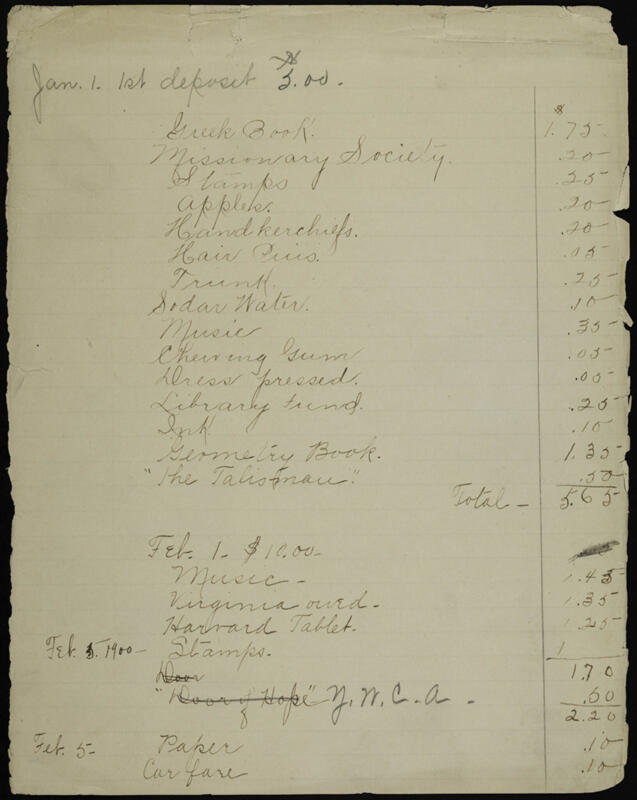 Jan. 1. 1st deposit $5.00-
$
Greek Book. 1.75
Missionary Society. .20
Stamps .25
Apples. .20
Handkerchiefs. .20
Hair Pins. .05
Trunk. .25
Sodar Water. .10
Music .35
Chewing Gum .05
Dress pressed. .05
Library Fund. .25
Ink .10
Geometry Book. 1.35
"The Talisman". .50
Total - 5.65
Feb. 1- $10.00-
Music - 1.45
Virginia owed. - 1.35
Harvard Tablet. 1.25
Feb. 5. 1900- Stamps. 1
Door 1.70
"Door of Hope" Y. W. C. A - .50
2.20
Feb. 5- Paper .10
Car fare .10